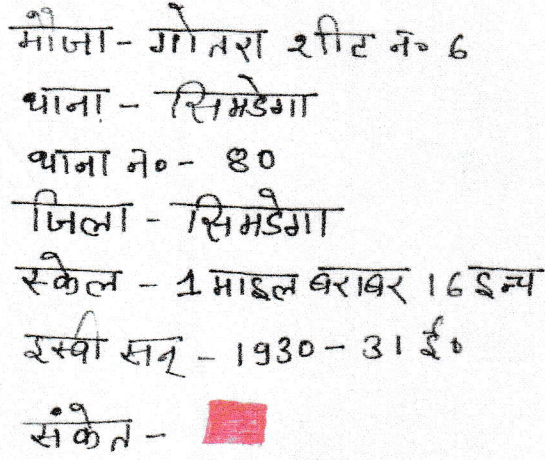 मौजा - गोतरा शीट नं० 6
थाना - सिमडेगा
थाना नं० - 80
जिला - सिमडेगा
स्केल - 1 माइल बराबर 16 इन्च
इस्वी सन् - 1930 - 31 ई०
संकेत -